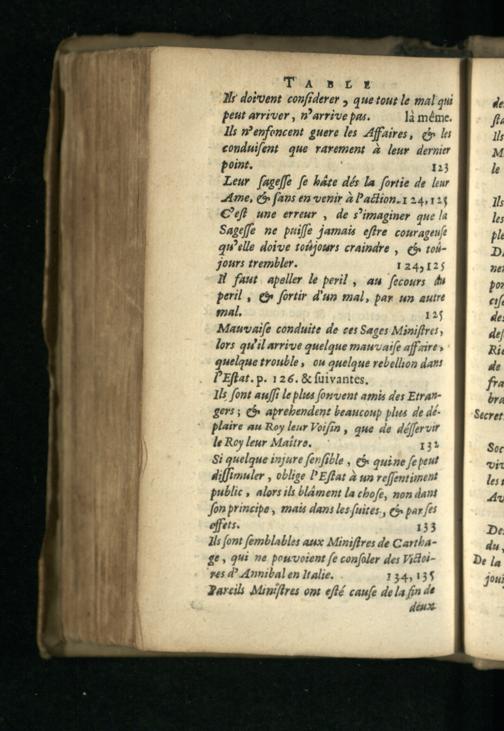 TABLE
Ils doivent considerer, que tout le mal qui
peut arriver, n'arrive pas. là même.
Ils n'enfoncent guere les Affaires, & les
conduisent que rarement à leur dernier
point. 123
Leur sagesse se hâte dés la sortie de leur
Ame, & sans en venir à l'action. 124, 125
C'est une erreur, de s'imaginer que la
Sagesse ne puisse jamais estre courageuse
qu'elle doive toûjours craindre, & toû-
jours trembler. 124, 125
Il faut apeller le peril, au secours du
peril, & sortir d'un mal, par un autre
mal. 125
Mauvaise conduite de ces Sages Ministres,
lors qu'il arrive quelque mauvaise affaire,
quelque trouble, ou quelque rebellion dans
l'Estat. p. 126. & suivantes.
Ils sont aussi le plus souvent amis des Etran-
gers; & aprehendent beaucoup plus de dé-
plaire au Roy leur Voisin, que de désservir
le Roy leur Maître. 132
Si quelque injure sensible, & qui ne se peut
dissimuler, oblige l'Estat à un ressentiment
public, alors ils blâment la chose, non dans
son principe, mais dans les suites, & par ses
effets. 133
Ils sont semblables aux Ministres de Cartha-
ge, qui ne pouvoient se consoler des Victoi-
res d'Annibal en Italie. 134, 135
Pareils Ministres ont esté cause de la fin de
deux